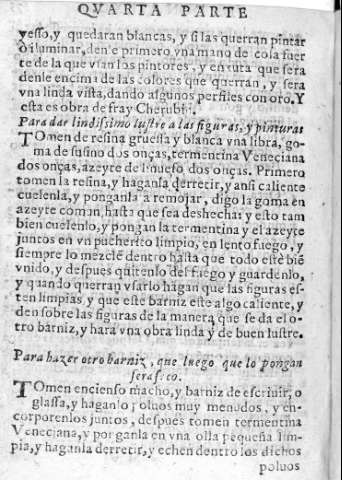 QVARTA PARTE
yesso, y quedaran blancas, y si las querran pintar
o iluminar, den e primero vna mano de cola fuer
te de la que vsan los pintores, y enxuta que sera
denle encima de las colores que querran, y sera
vna linda vista, dando algunos perfiles con oro. Y
esta es obra de fray Cherubin.
Para dar lindissimo lustre a las figuras, y pinturas
TOmen de resina gruessa y blanca vna libra, go
ma de susino dos onças, termentina Veneciana
dos onças, azeyte de linueso dos onças. Primero
tomen la resina, y haganla derretir, y ansi caliente
cuelenla, y ponganla a remojar, digo la goma en
azeyte coman, hasta que sea deshecha: y esto tam
bien cuelenlo, y pongan la termentina y el azeyte
juntos en vn pucherico limpio, en lento fuego, y
siempre lo mezclē dentro hasta que todo estè biē
vnido, y despues quitenlo del fuego y guardenlo,
y quando querran vsarlo hagan que las figuras es-
ten limpias y que este barniz este algo caliente, y
den sobre las figuras de la manera que se da el o-
tro barniz, y hara vna obra linda y de buen lustre.
Para hazer otro barniz, que luego que lo pongan
sera seco.
TOmen encienso macho, y barniz de escriuir, o
glassa, y haganlo poluos muy menudos, y en-
corporenlos juntos, despues tomen termentina
Veneciana, y ponganla en vna olla pequeña lim-
pia, y haganla derretir, y echen dentro los dichos
poluos